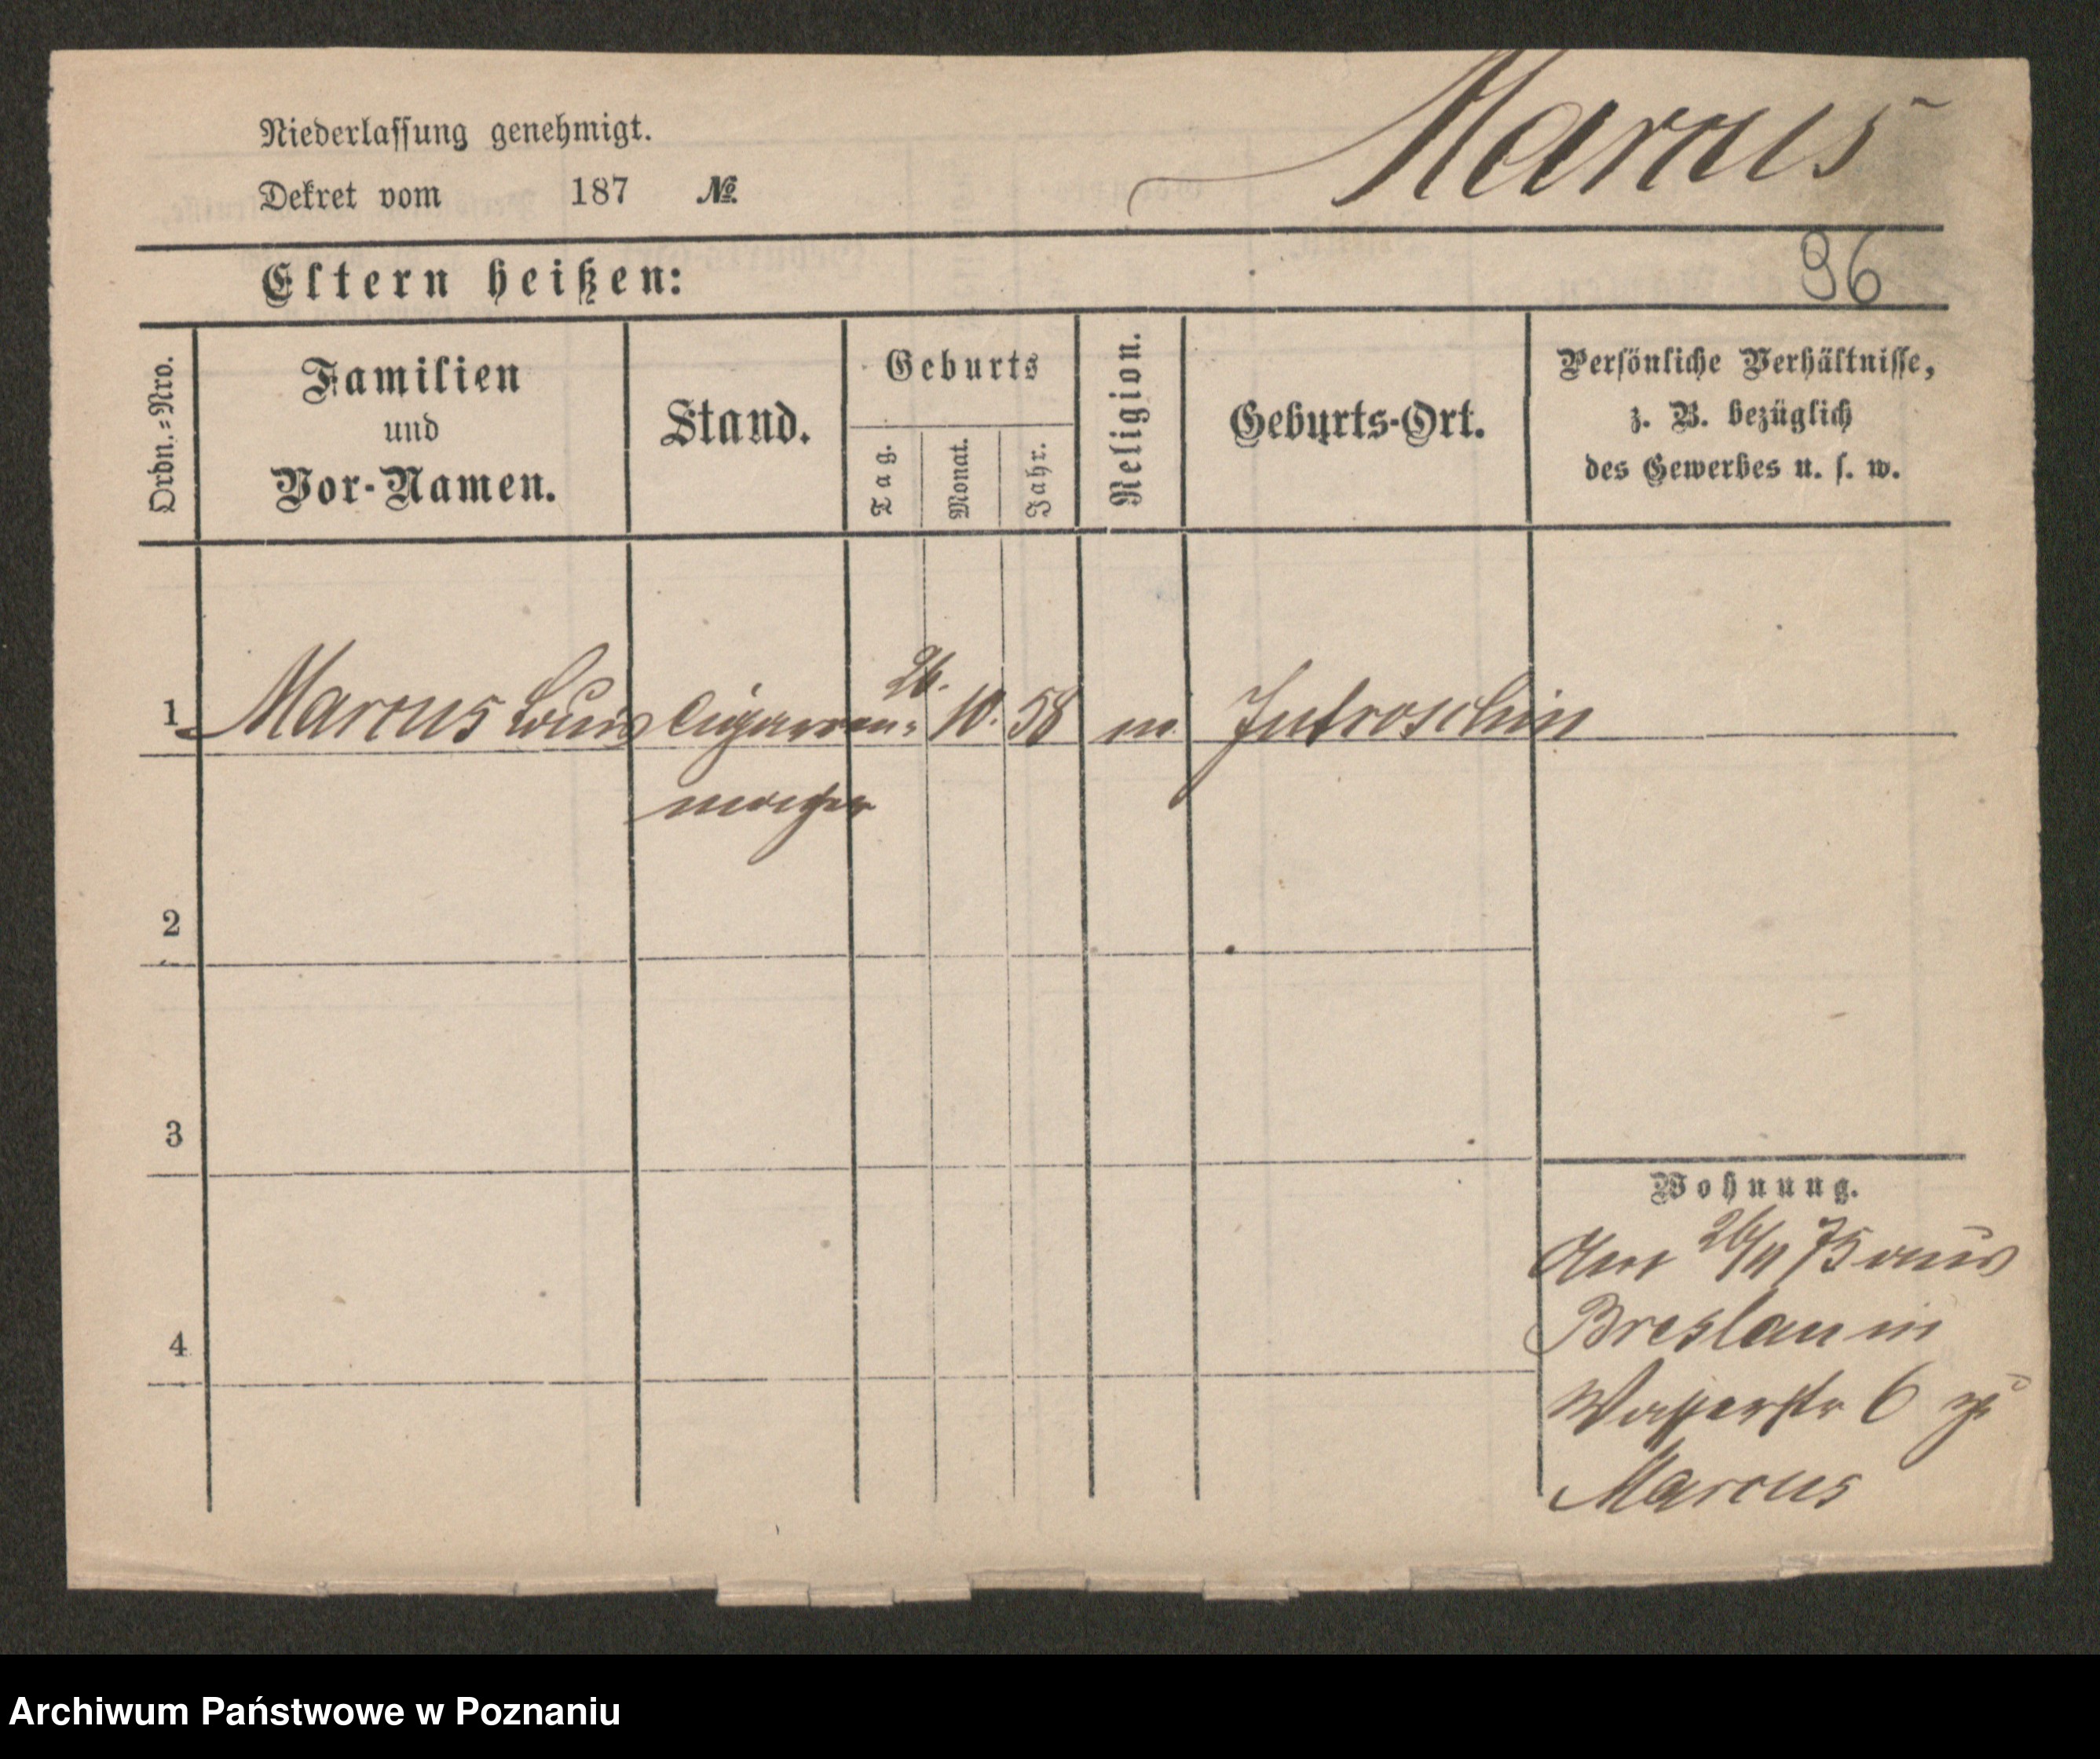 Marcus
Niederlassung genehmigt.
Dekret vom 187 №
Eltern heißen:
96
Ordn.=Nro.
Familien
und
Vor-Namen.
Stand.
Geburts
Tag.
Monat.
Jahr.
Religion.
Geburts-Ort.
Persönliche Verhältnisse,
z. B. bezüglich
des Gewerbes u. s. w.
1 Marcus Louis Cigarren= 26. 10. 58 m Jutroschin
macher
2
3
4
Wohnung.
Am 26/11 75 aus
Breslau in
Wasserstr 6 zu
Marcus
Archiwum Państwowe w Poznaniu